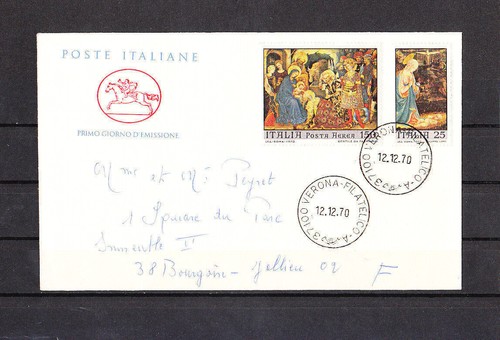 POSTE ITALIANE
PRIMO GIORNO D'EMISSIONE
ITALIA Posta Aerea 150
ITALIA 25
37100 VERONA-FILATELICO-A
12.12.70
37100 VERONA-FILATELICO-A
12.12.70
Mme et Mr Peyret
1 Square du Parc
38 Bourgoin-Jallieu 02 F